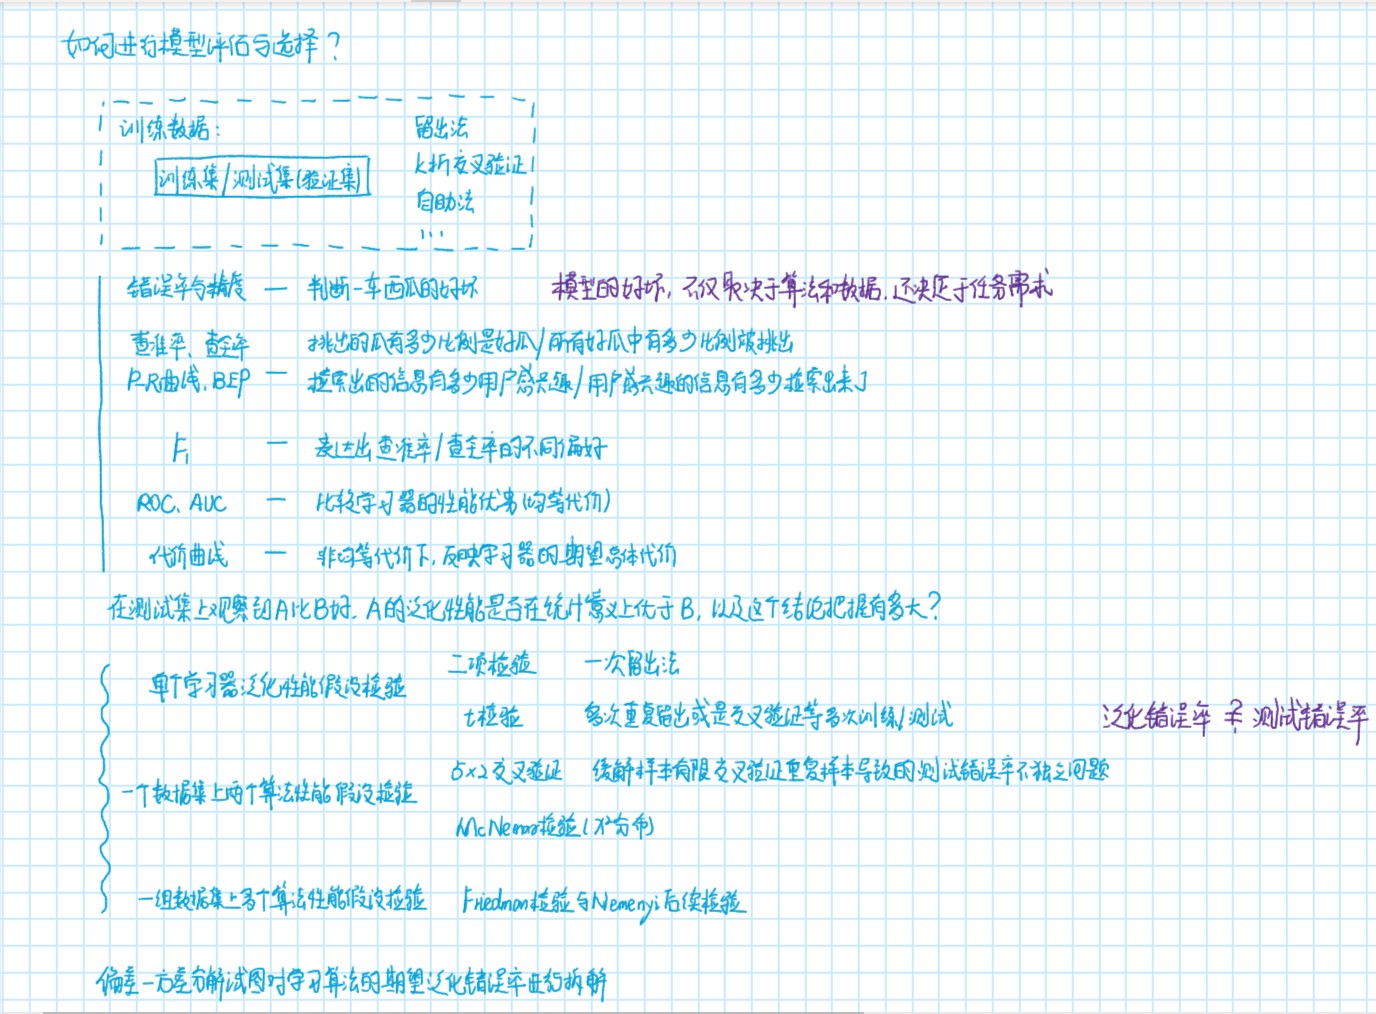 如何进行模型评估与选择？
训练数据：
留出法
训练集/测试集(验证集)
k折交叉验证
自助法
...
错误率与精度 — 判断一车西瓜的好坏
模型的好坏，不仅取决于算法和数据，还决定于任务需求
查准率、查全率 挑出的瓜有多少比例是好瓜/所有好瓜中有多少比例被挑出
P-R曲线、BEP — 检索出的信息有多少用户感兴趣/用户感兴趣的信息有多少检索出来了
F₁ — 表达出查准率/查全率的不同偏好
ROC、AUC — 比较学习器的性能优劣(均等代价)
代价曲线 — 非均等代价下，反映学习器的期望总体代价
在测试集上观察到A比B好，A的泛化性能是否在统计意义上优于B，以及这个结论把握有多大？
二项检验 一次留出法
单个学习器泛化性能假设检验
t检验 多次重复留出或是交叉验证等多次训练/测试
泛化错误率 ≟ 测试错误率
5×2交叉验证 缓解样本有限交叉验证重复样本导致的测试错误率不独立问题
一个数据集上两个算法性能假设检验
McNemar检验(χ²分布)
一组数据集上多个算法性能假设检验 Friedman检验与Nemenyi后续检验
偏差—方差分解试图对学习算法的期望泛化错误率进行拆解